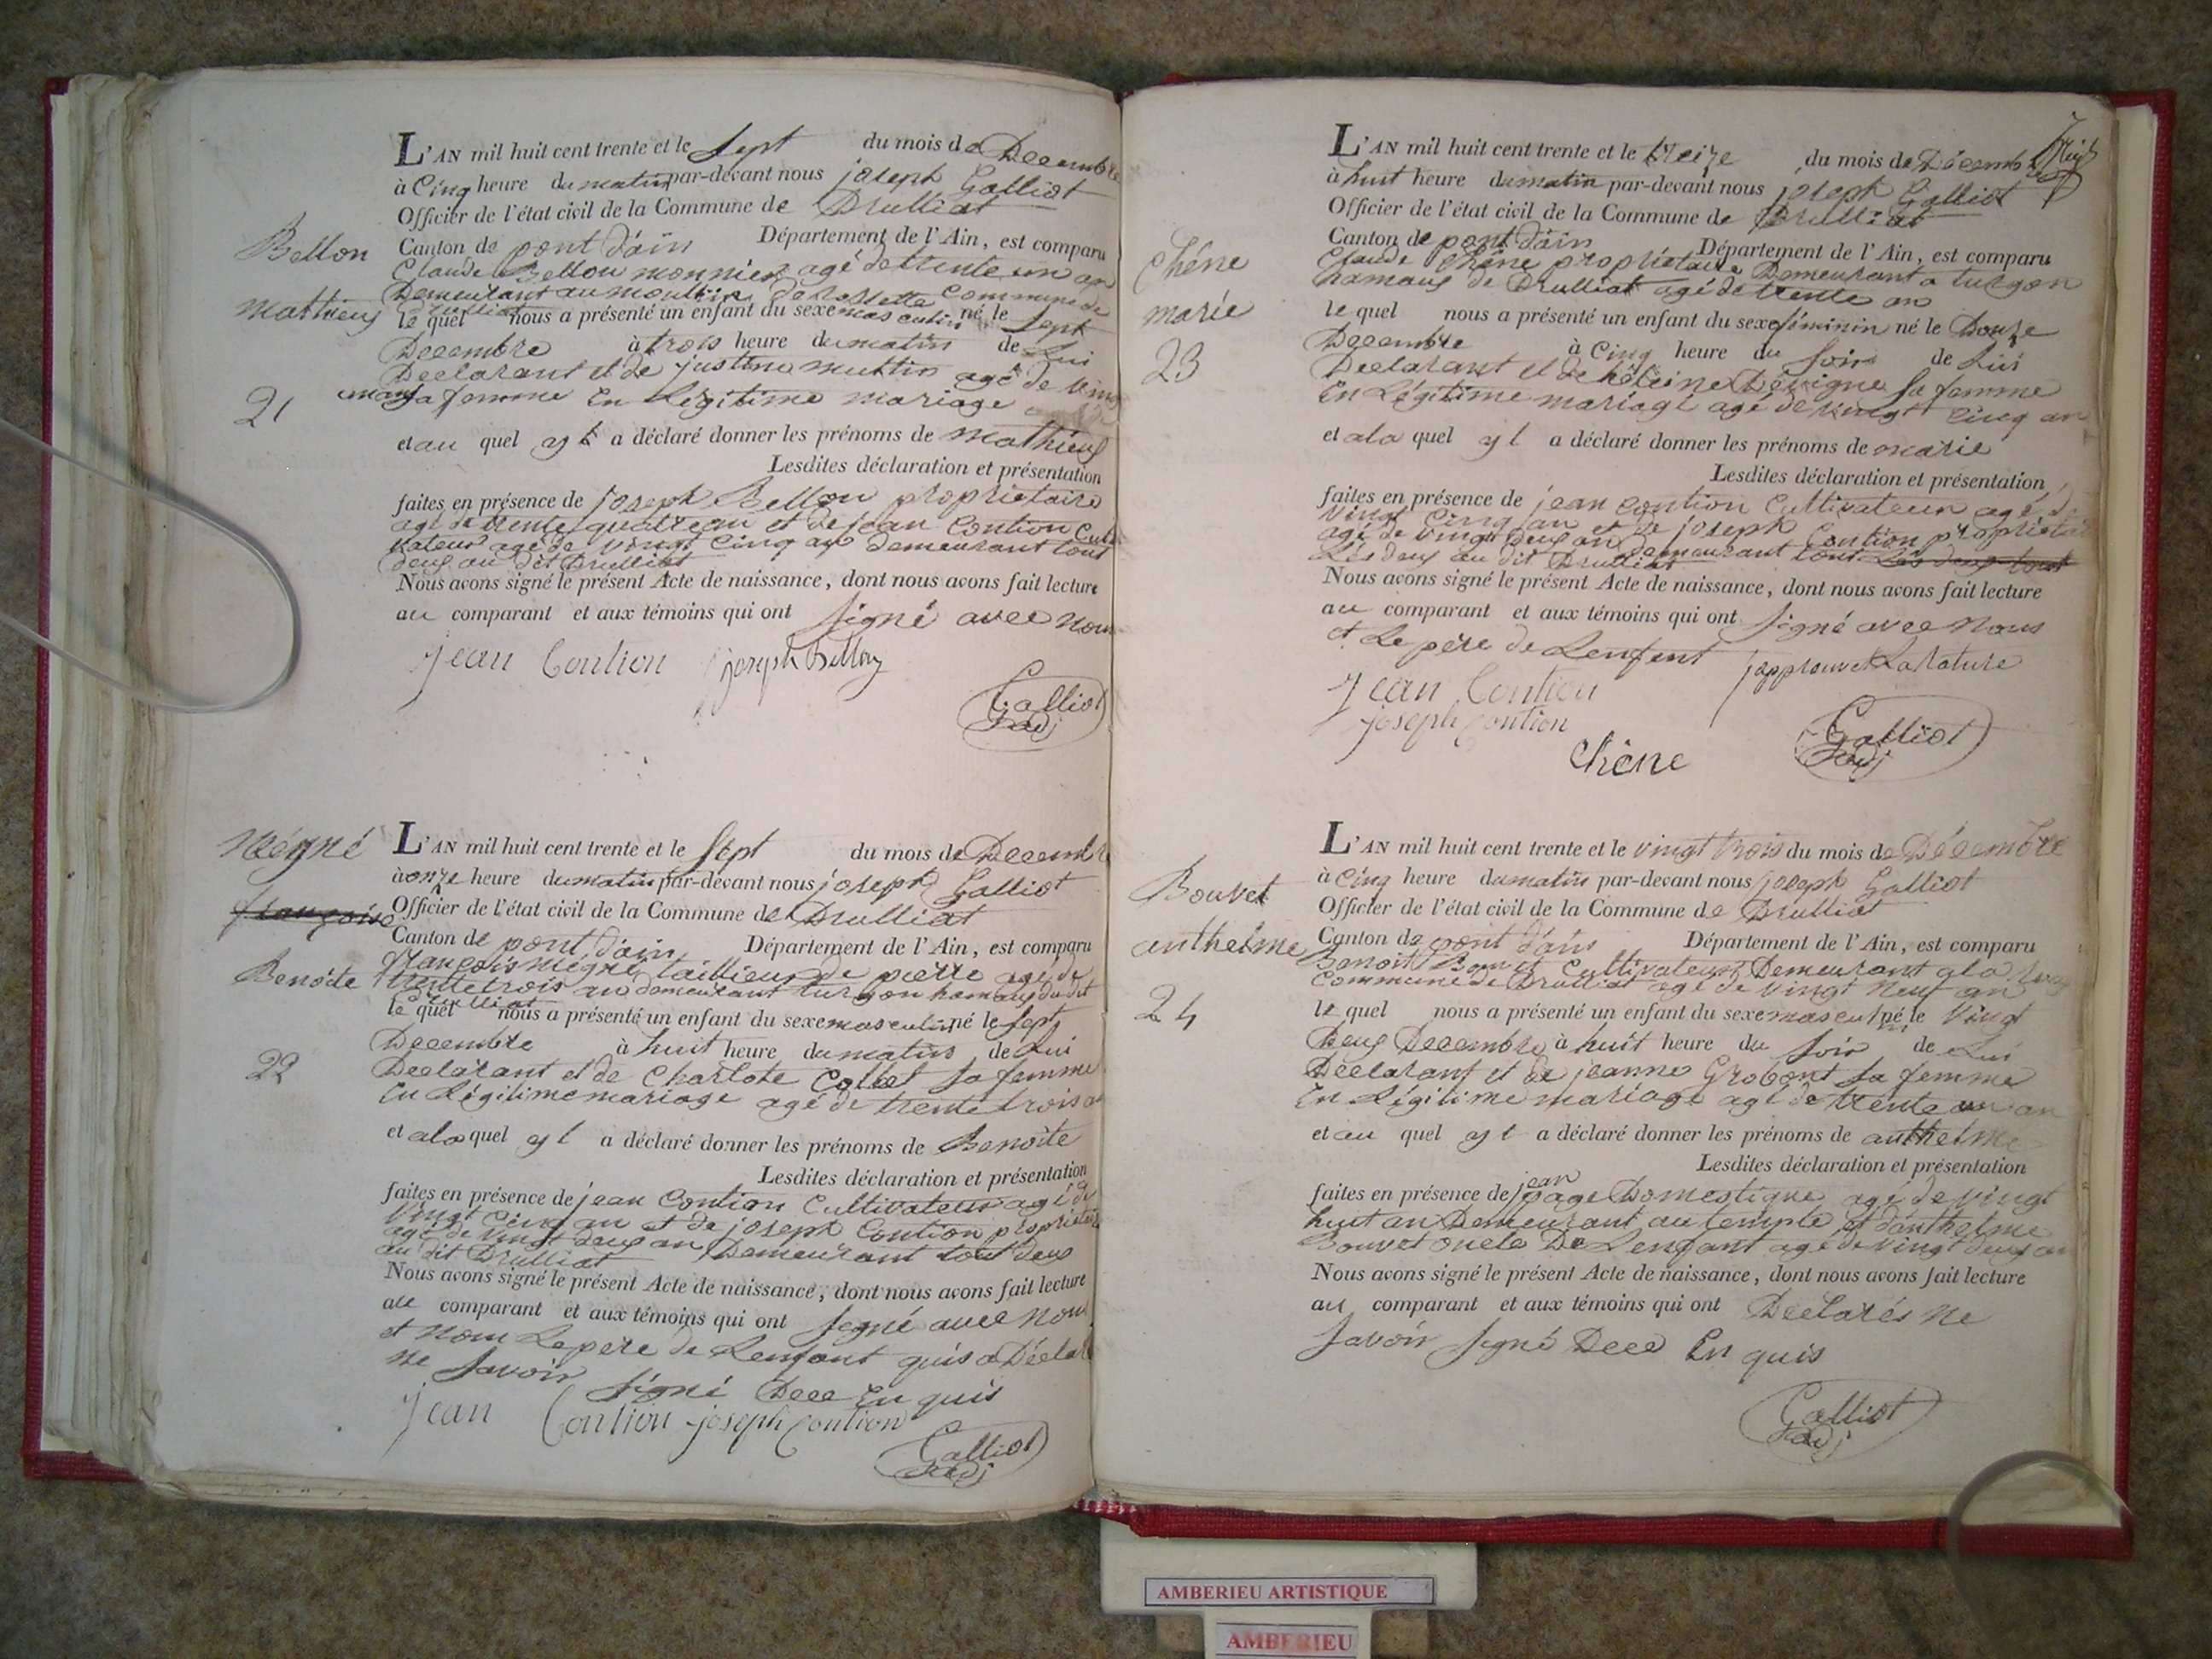 L'AN mil huit cent trente et le Sept du mois de Decembre
à Cinq heure du matin par-devant nous joseph Galliot
Officier de l'état civil de la Commune de Drulliat
Bellon
Canton de pont d'ain Département de l'Ain, est comparu
Claude Bellon monnier agé de trente un an
Demeurant au moullin de rossette Commune de
mathieus
Drulliat
le quel nous a présenté un enfant du sexe masculin né le Sept
Decembre à trois heure du matin de Lui
Declarant et de justine muttin agé de vint
21
sa femme En Legitime mariage
et au quel yl a déclaré donner les prénoms de mathieus
Lesdites déclaration et présentation
faites en présence de joseph Bellon propriétaire
agé de trente quatre an et de jean Contion Culti
vateur agé de vingt Cinq an demeurant tout
deus au dit Drulliat
Nous avons signé le présent Acte de naissance, dont nous avons fait lecture
au comparant et aux témoins qui ont Signé avec nous
jean Contion joseph Bellon
Galliot
adj
Mégné
L'AN mil huit cent trente et le Sept du mois de Decembre
à onze heure du matin par-devant nous joseph Galliot
françoise
Officier de l'état civil de la Commune de Drulliat
Canton de pont d'ain Département de l'Ain, est comparu
françois mégné taillieur de pierre agé de
Benoite
trente trois an demeurant turgon hamaus du dit
Drulliat
le quel nous a présenté un enfant du sexe masculin né le Sept
Decembre à huit heure du matin de Lui
22
Declarant et de Charlote Collet sa femme
En Légitime mariage agé de trente trois an
et a la quel yl a déclaré donner les prénoms de Benoite
Lesdites déclaration et présentation
faites en présence de jean Contion Cultivateur agé de
vingt Cinq an et de joseph Contion propriétaire
agé de vingt deus an Demeurant tout deus
au dit Drulliat
Nous avons signé le présent Acte de naissance, dont nous avons fait lecture
au comparant et aux témoins qui ont Segné avec nous
et nom Le pere de Lenfant quis a Déclaré
ne Savoir Signé Dece En quis
jean Contion joseph Contion
Galliot
adj
L'AN mil huit cent trente et le treize du mois de Décembre
à huit heure du matin par-devant nous joseph Galliot
Officier de l'état civil de la Commune de Drulliat
Chéne
Canton de pont d'ain Département de l'Ain, est comparu
Claude Chéne propriétaire Demeurant a turgon
hamaus de Drulliat agé de trente an
marie
le quel nous a présenté un enfant du sexe féminin né le Douze
Decembre à Cinq heure du Soir de Lui
23
Declarant et de héleine Dévigne Sa femme
En Légitime mariage agé de vingt Cinq an
et a la quel yl a déclaré donner les prénoms de marie
Lesdites déclaration et présentation
faites en présence de jean Contion Cultivateur agé de
vingt Cinq an et de joseph Contion propriétaire
agé de vingt deus an demeurant tout Les deus tout
Les deus au dit Drulliat
Nous avons signé le présent Acte de naissance, dont nous avons fait lecture
au comparant et aux témoins qui ont Signé avec Nous
et Le pére de Lenfent japprouve La rature
jean Contion
joseph Contion
Chêne
Galliot
adj
L'AN mil huit cent trente et le vingt trois du mois de Décembre
à Cinq heure du matin par-devant nous joseph Galliot
Bouvet
Officier de l'état civil de la Commune de Drulliat
anthelme
Canton de pont d'ain Département de l'Ain, est comparu
Benoit Bouvet Cultivateur Demeurant a la
Commune de Drulliat agé de vingt neuf an
24
le quel nous a présenté un enfant du sexe masculin né le Vingt
Deus Decembre à huit heure du Soir de Lui
Déclarant et de jeanne Grobont Sa femme
En Légitime mariage agé de trente un an
et au quel yl a déclaré donner les prénoms de anthelme
Lesdites déclaration et présentation
faites en présence de jean page Domestique agé de vingt
huit an Demeurant au temple et d'anthelme
Bouvet oncle De Lenfant agé de vingt deus an
Nous avons signé le présent Acte de naissance, dont nous avons fait lecture
au comparant et aux témoins qui ont Declarés ne
Savoir Segné Dece En quis
Galliot
adj
AMBERIEU ARTISTIQUE
AMBERIEU